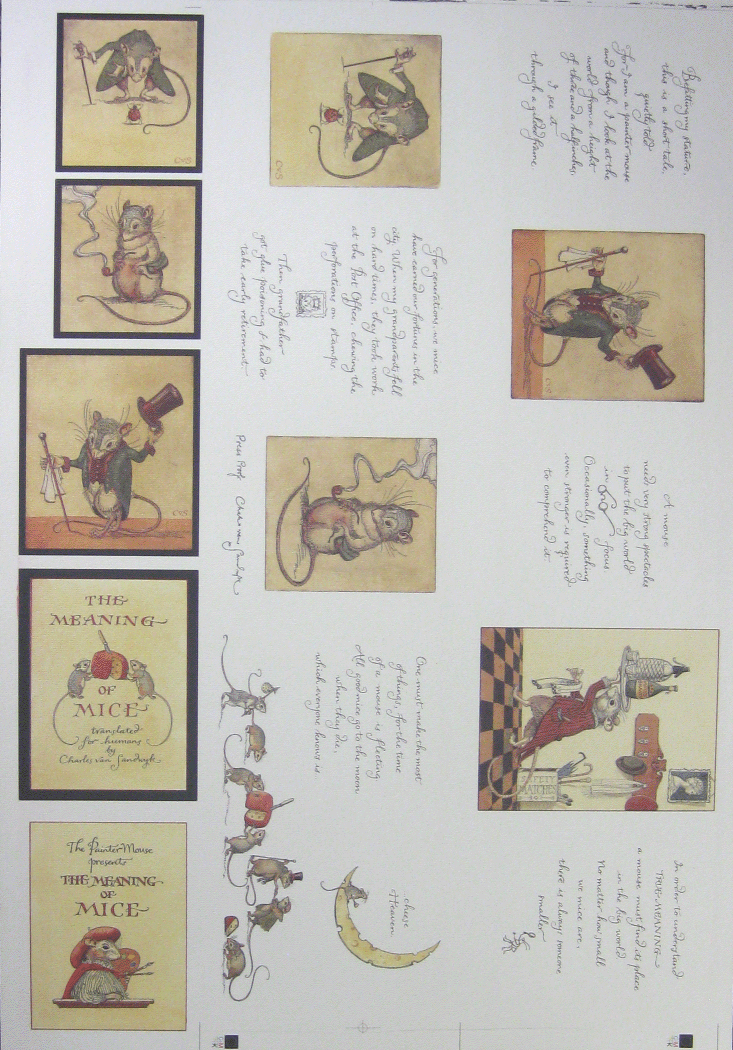 Befitting my stature,
this is a short tale,
quietly told.
For I am a painter mouse
and though I look at the
world from a height
of three and a half inches,
I see it
through a gilded frame.
For generations, we mice
have earned our fortunes in the
city. When my grandparents fell
on hard times, they took work
at the Post Office, chewing the
perforations on stamps.
Then grandfather
got glue poisoning & had to
take early retirement
A mouse
need very strong spectacles
to put the big world
in focus.
Occasionally, something
even stronger is required
to comprehend it.
Press Proof Charles van Sandwyk
One must make the most
of things, for the time
of a mouse is fleeting
All good mice go to the moon
when they die,
which everyone knows is
cheese
Heaven.
In order to understand
TRUE MEANING
a mouse must find its place
in the big world
No matter how small
we mice are,
there is always someone
smaller
SAFETY
MATCHES
CVS
CVS
CVS
CVS
THE
MEANING
OF
MICE
translated
for humans
by
Charles van Sandwyk
The Painter Mouse
presents
THE MEANING
OF
MICE